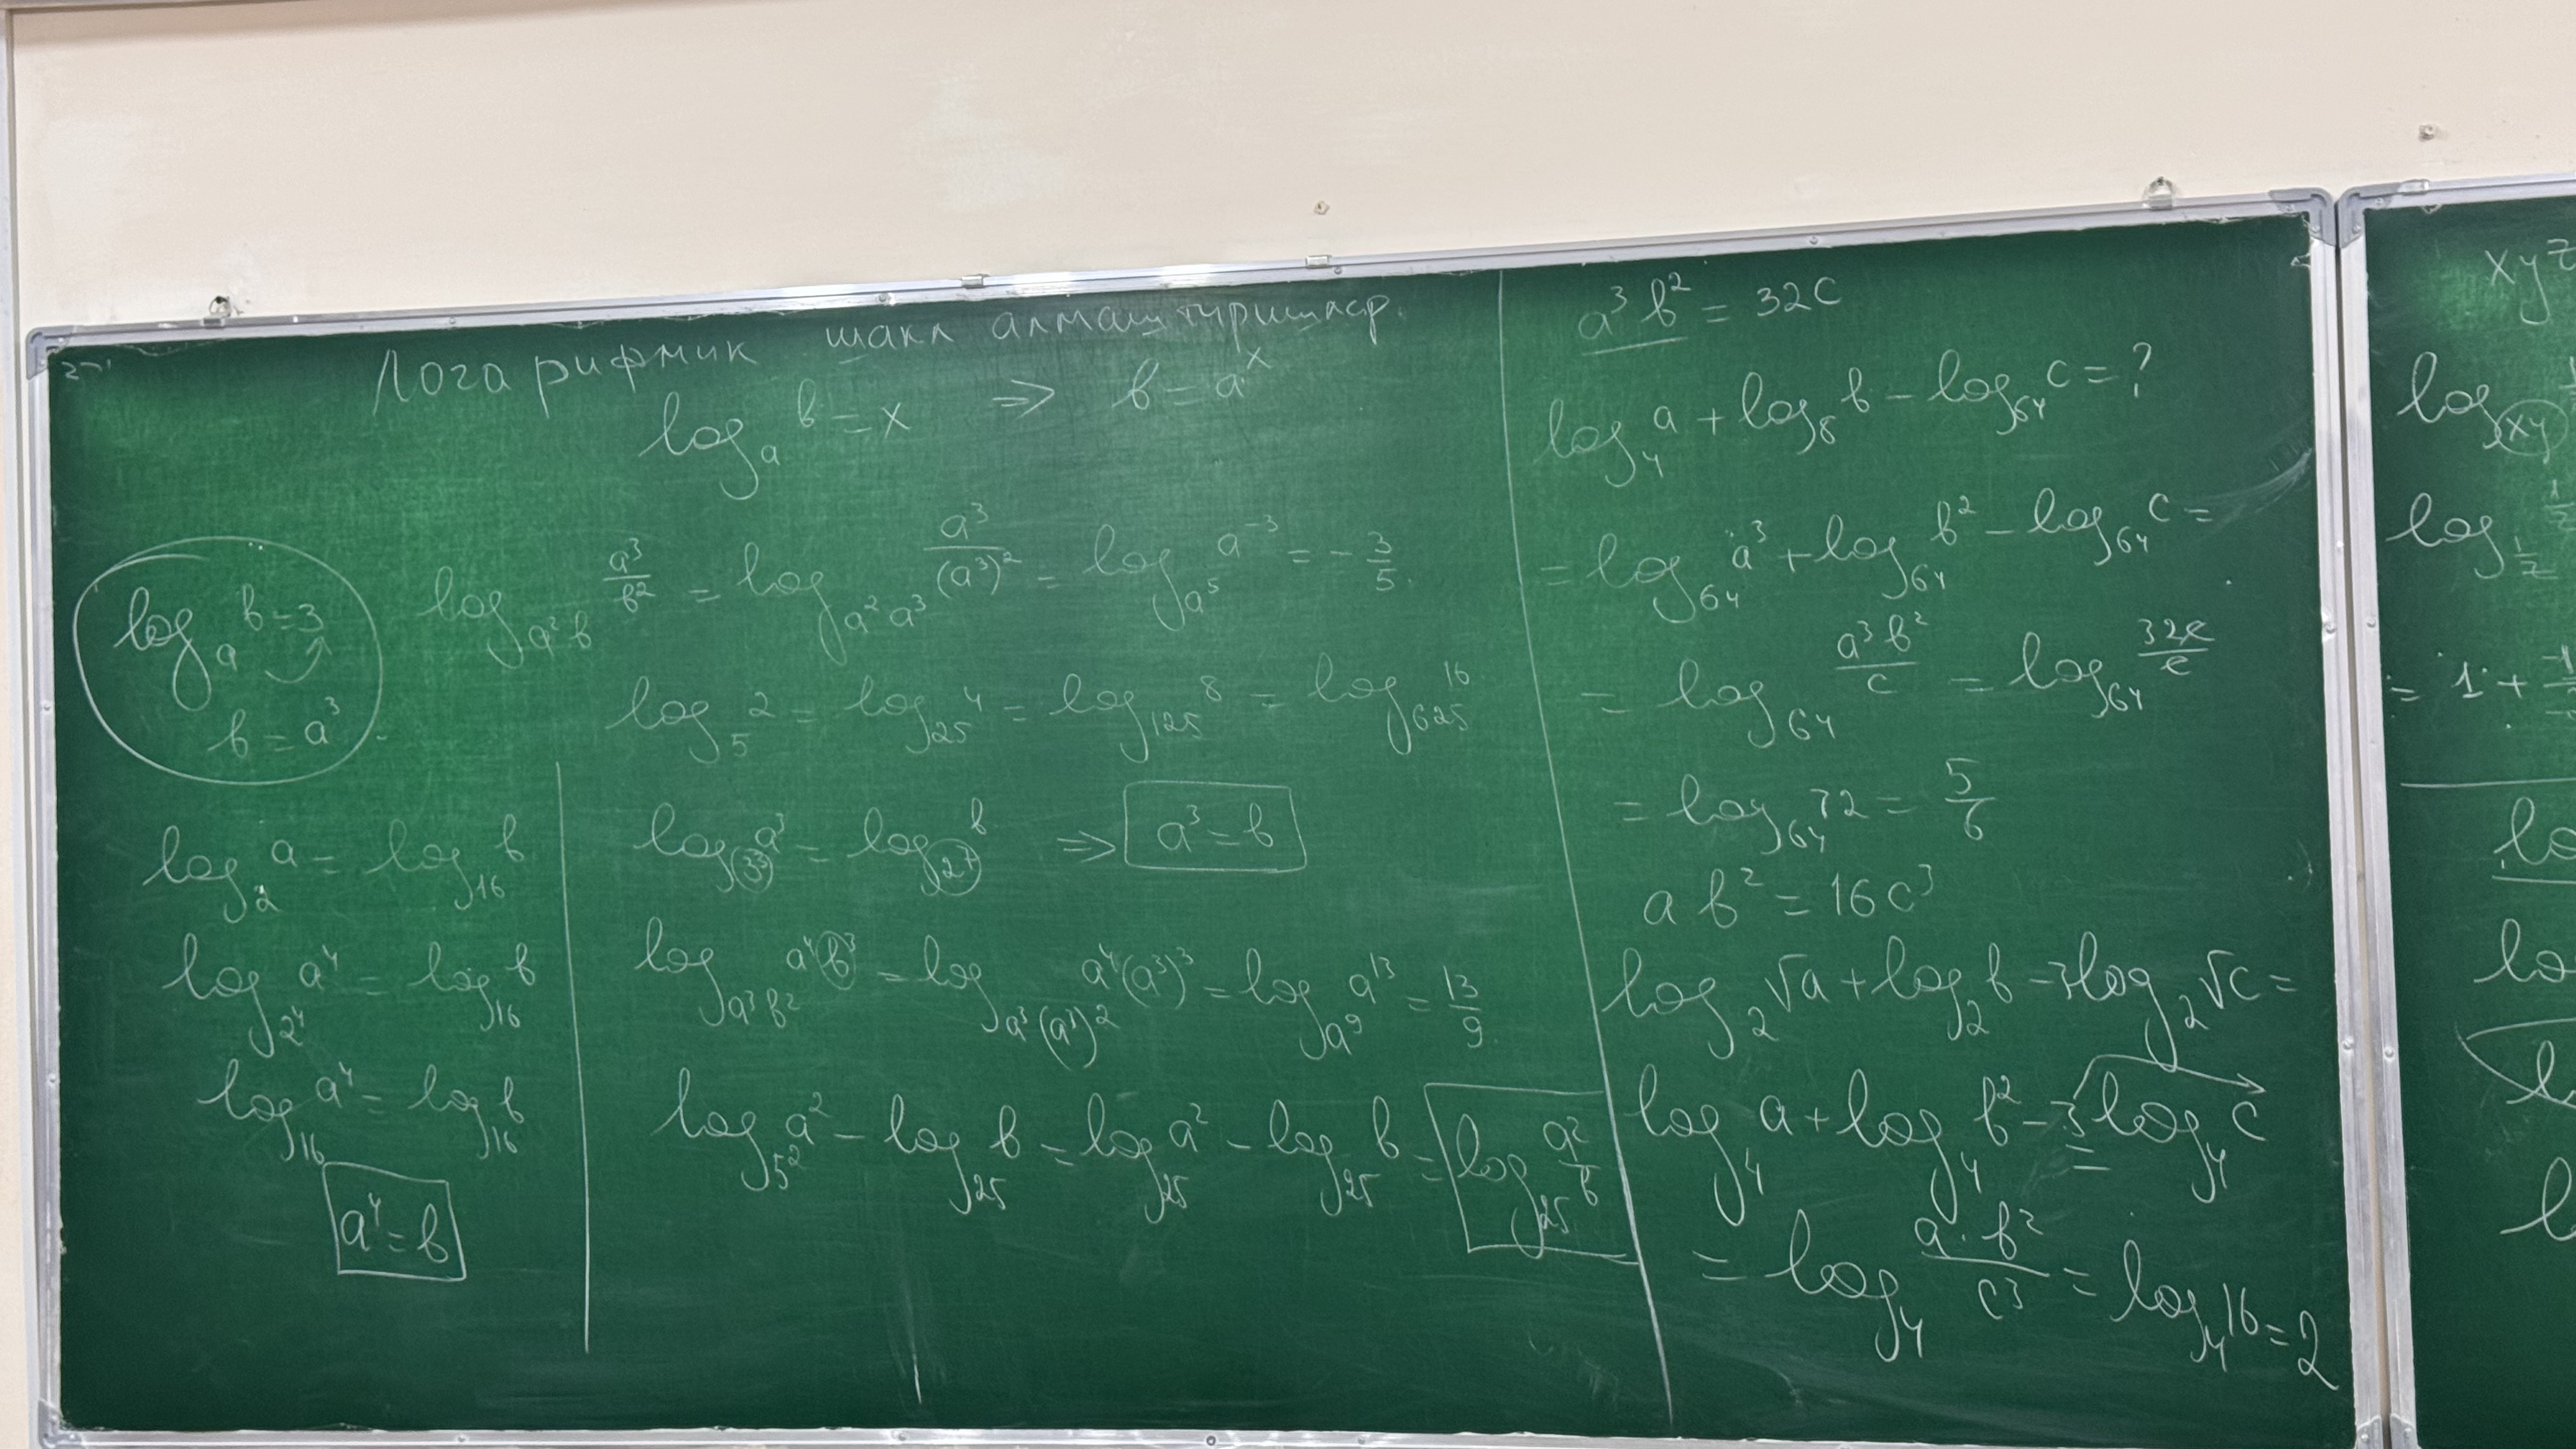 Логарифмик шакл алмаштиришлар.
log_a b = x ⇒ b = a^x
log_a b = 3
b = a^3
log_{a^2 b} a^3/b^2 = log_{a^2 a^3} a^3/(a^3)^2 = log_{a^5} a^{-3} = -3/5.
log_5 2 = log_25 4 = log_125 8 = log_625 16
log_2 a = log_16 b
log_{2^4} a^4 = log_16 b
log_16 a^4 = log_16 b
a^4 = b
log_{3^3} a^3 = log_27 b ⇒ a^3 = b
log_{a^3 b^2} a^4 b^3 = log_{a^3 (a^3)^2} a^4 (a^3)^3 = log_{a^9} a^13 = 13/9.
log_{5^2} a^2 - log_25 b = log_25 a^2 - log_25 b = log_25 a^2/b
a^3 b^2 = 32c
log_4 a + log_8 b - log_64 c = ?
= log_64 a^3 + log_64 b^2 - log_64 c =
= log_64 a^3 b^2/c = log_64 32c/c
= log_64 32 = 5/6
ab^2 = 16c^3
log_2 √a + log_2 b - 3log_2 √c =
log_4 a + log_4 b^2 - 3 log_4 c
= log_4 a·b^2/c^3 = log_4 16 = 2
xyz
log_xy
log_{1/z}
= 1 +
lo
lo
l